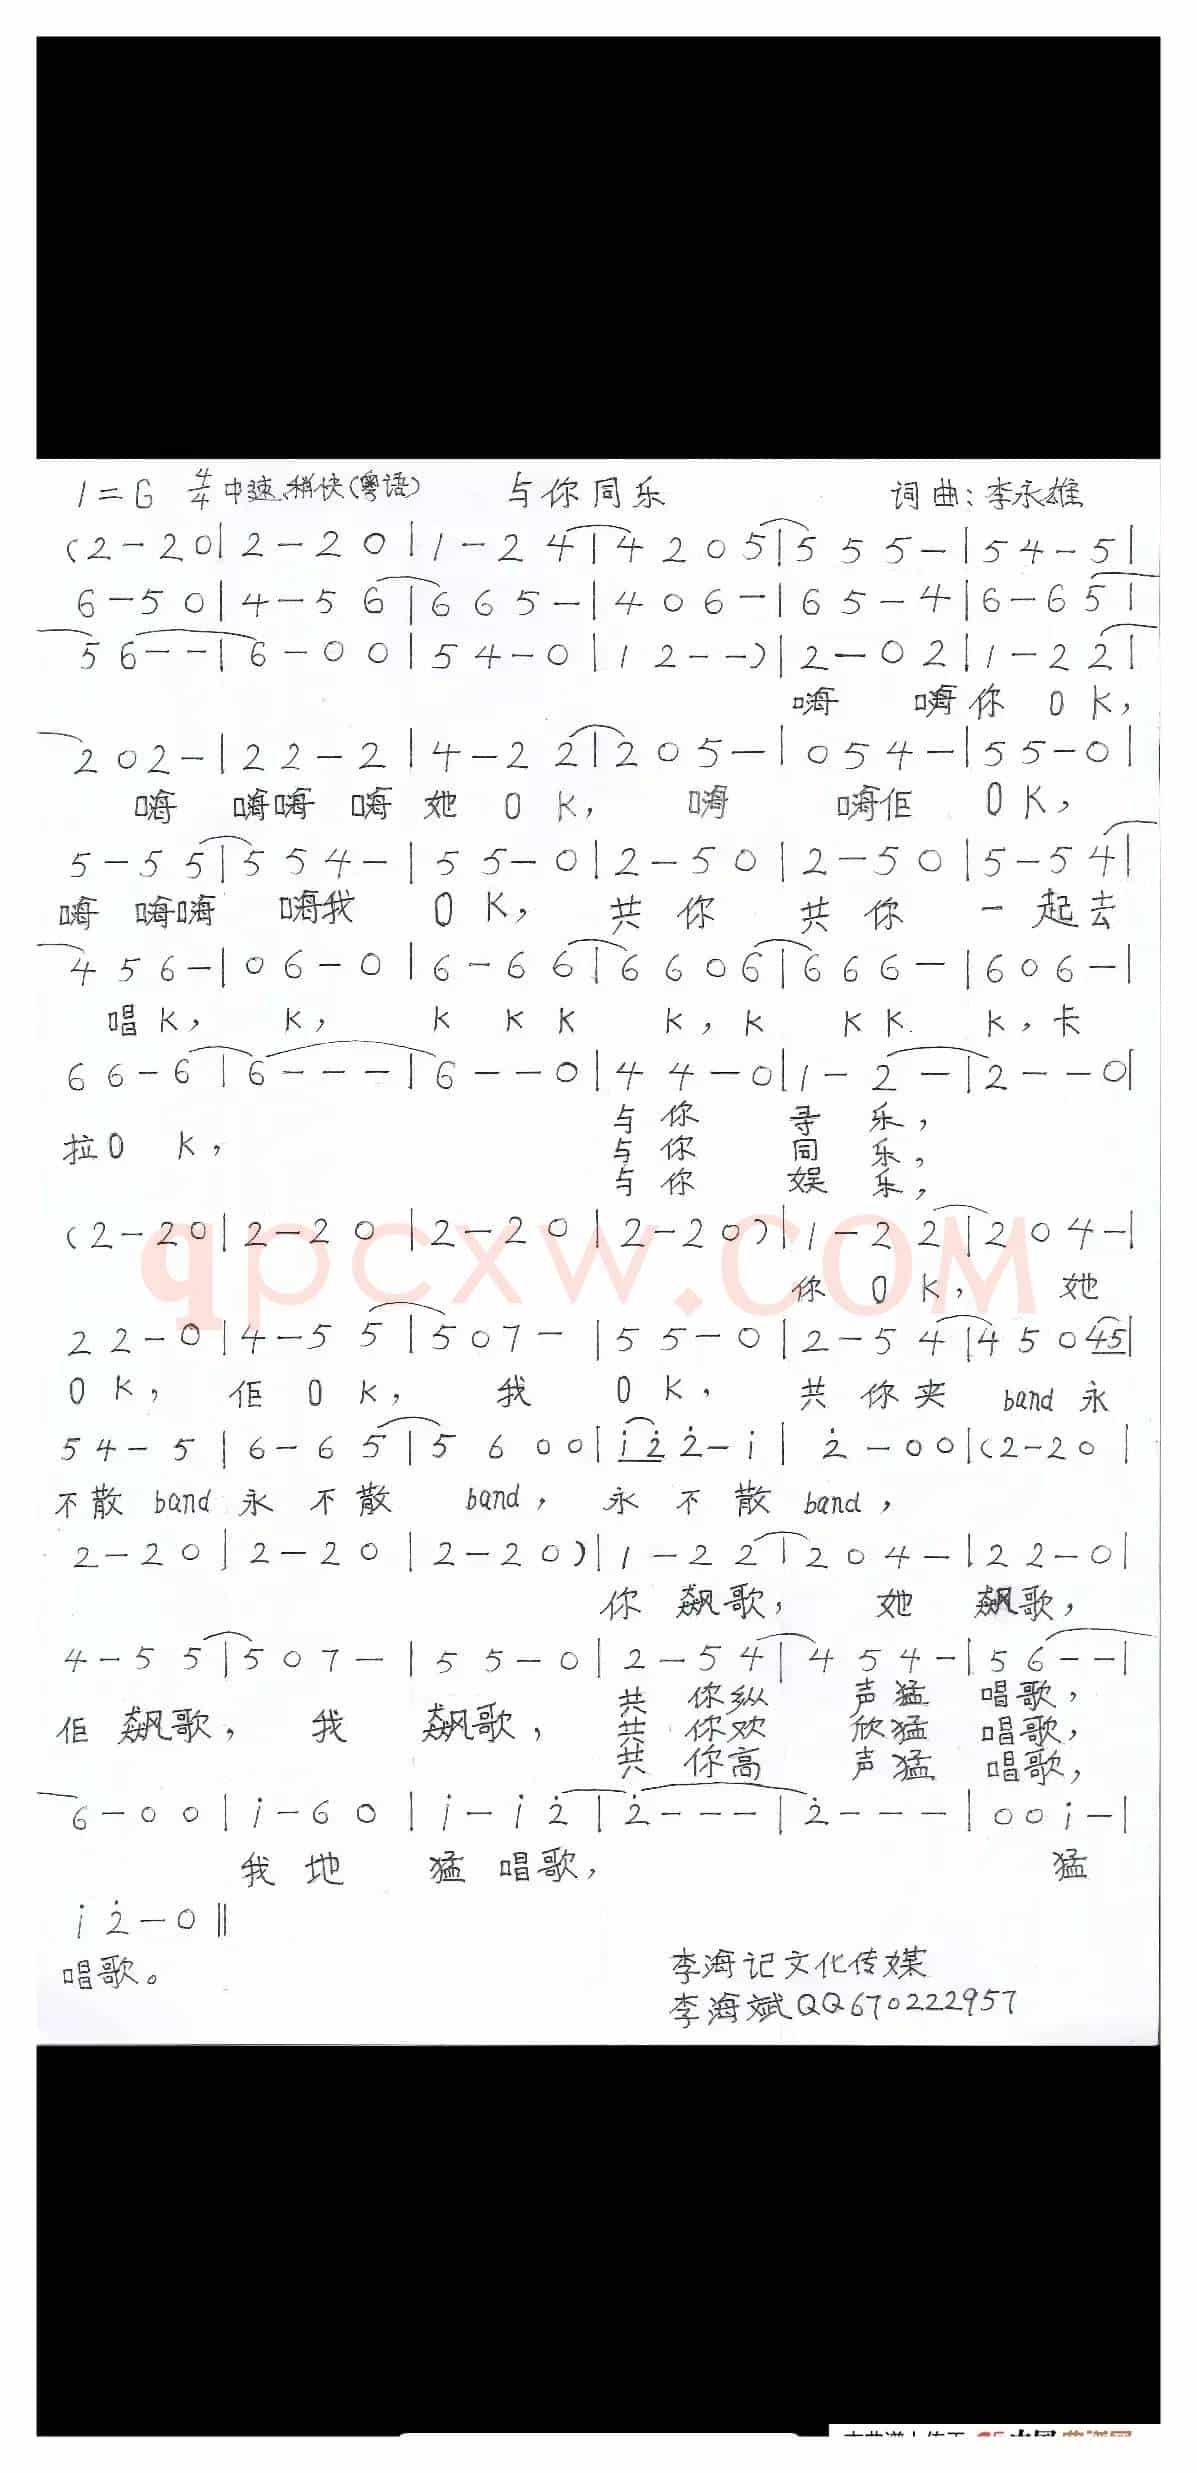 1=G 4/4 中速.稍快(粤语) 与你同乐 词曲:李永雄
(2-20|2-20|1-24|4205|555-|54-5|
6-50|4-56|665-|406-|65-4|6-65|
56--|6-00|54-0|12--)|2-02|1-22|
嗨 嗨你 O K,
202-|22-2|4-22|205-|054-|55-0|
嗨 嗨嗨 嗨她 O K, 嗨 嗨佢 O K,
5-55|554-|55-0|2-50|2-50|5-54|
嗨 嗨嗨 嗨我 O K, 共 你 共 你 一 起去
456-|06-0|6-66|6606|666-|606-|
唱K, K, K K K K, K K K. K, 卡
66-6|6---|6--0|44-0|1-2-|2--0|
与你 寻 乐,
拉O K, 与你 同 乐,
与你 娱 乐,
(2-20|2-20|2-20|2-20)|1-22|204-|
qpcxw.COM
你 O K, 她
22-0|4-55|507-|55-0|2-54|45045|
O K, 佢 O K, 我 O K, 共 你夹 band永
54-5|6-65|5600|i̇2̇2̇-i̇|2̇-00|(2-20|
不散 band 永 不散 band, 永 不 散 band,
2-20|2-20|2-20)|1-22|204-|22-0|
你 飙歌, 她 飙歌,
4-55|507-|55-0|2-54|454-|56--|
共 你纵 声猛 唱歌,
佢 飙歌, 我 飙歌, 共 你欢 欣猛 唱歌,
共 你高 声猛 唱歌,
6-00|i̇-60|i̇-i̇2̇|2̇---|2̇---|00i̇-|
我 地 猛 唱歌, 猛
i̇2̇-0‖
唱歌。
李海记文化传媒
李海斌QQ670222957